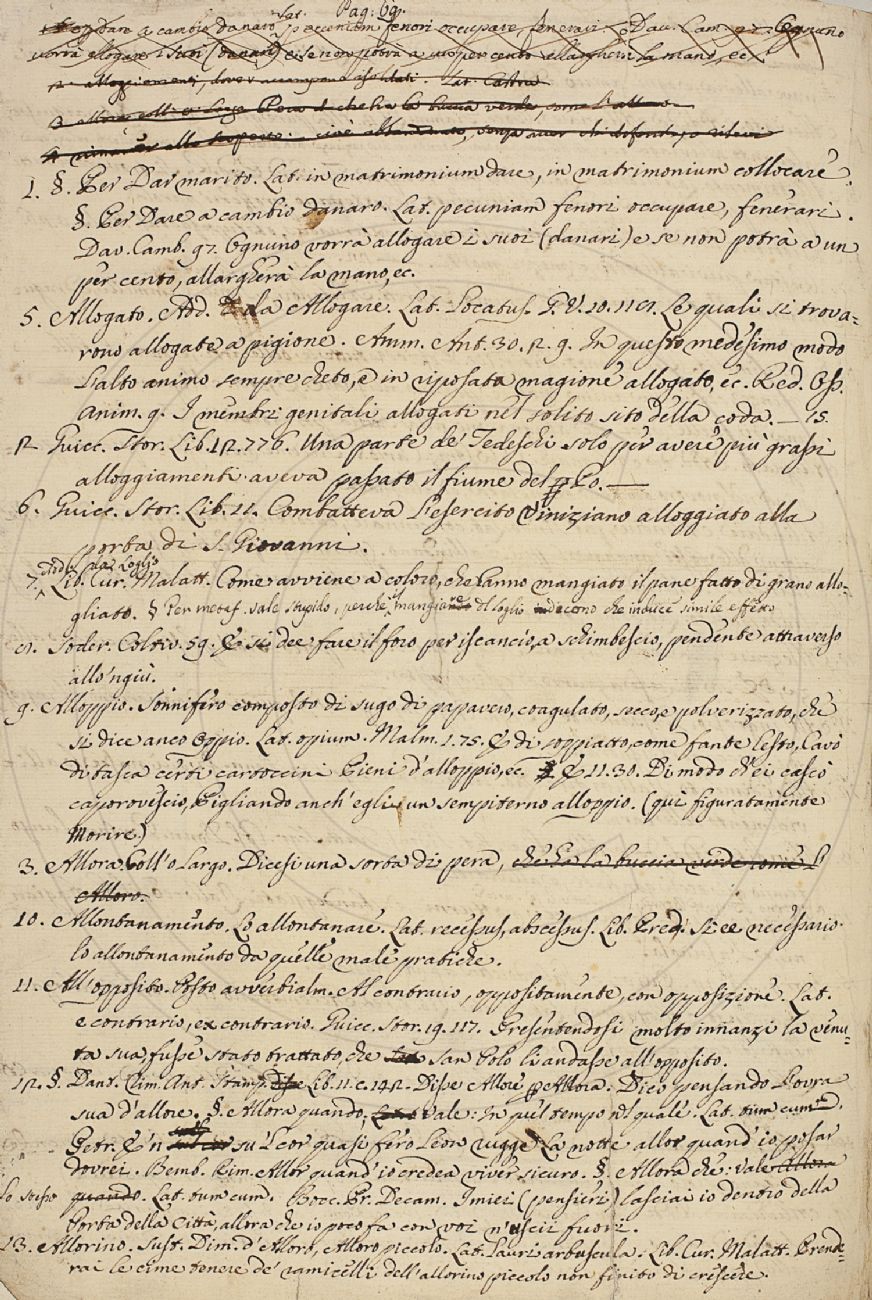 Pag: 69.
Dare a cambio danaro. Lat. pecuniam fenori occupare, fenerari. Dav. Cam. 97. Ognuno
vorrà allogare i suoi (danari) e se non potrà a un per cento allargherà la mano, ec.
12 alloggiamenti, dove accampano i soldati. Lat. Castra
3 che ha la buccia verde, come l'alloro.
1. §. Per Dar marito. Lat. in matrimonium dare, in matrimonium collocare.
§. Per Dare a cambio danaro. Lat. pecuniam fenori occupare, fenerari.
Dav. Camb. 97. Ognuno vorrà allogare i suoi (danari) e se non potrà a un
per cento, allargherà la mano, ec.
5. Allogato. Add. da Allogare. Lat. Locatus. G. V. 10. Le quali si trova-
rono allogate a pigione. Amm. Ant. 30. 12. 9. In questo medesimo modo
l'alto animo sempre cheto, e in riposata magione allogato, ec. Red. Oss.
Anim. 9. I membri genitali allogati nel solito sito della coda. — 15.
12 Guicc. Stor. Lib. 12. 776. Una parte de' Tedeschi solo per avere più grassi
alloggiamenti aveva passato il fiume del Po. —
6. Guicc. Stor. Lib. 11. Combatteva l'esercito Viniziano alloggiato alla
porta di S. Giovanni.
Add. da Loglio
7. Lib. Cur. Malatt. Come avviene a coloro, che hanno mangiato il pane fatto di grano allo-
gliato. § Per metaf. vale stupido, perchè il mangiare del loglio dicono che induce simile effetto
8. Soder. Coltiv. 59. E si dee fare il foro per iscancio, a schimbescio, pendente attraverso
allo 'ngiù.
9. Alloppio. Sonnifero composto di sugo di papavero, coagulato, secco, e polverizzato, che
si dice anco Oppio. Lat. opium. Malm. 1. 75. E di soppiatto, come fante lesto, Cavò
di tasca certi cartoccini Pieni d'alloppio, ec. E 11. 30. Di modo ch'ei cascò
caporovescio, Pigliando anch' egli un sempiterno alloppio. (qui figuratamente
Morire.)
3. Allora Coll'o Largo. Dicesi una sorta di pera, che ha la buccia verde come l'
Alloro.
10. Allontanamento. Lo allontanare. Lat. recessus, abscessus. Lib. Pred. Si ee necessario
lo allontanamento da quelle male pratiche.
11. All'opposito. Posto avverbialm. Al contrario, oppositamente, con opposizione. Lat.
e contrario, ex contrario. Guicc. Stor. 19. 117. Presentendosi molto innanzi la venu-
ta sua, fusse stato trattato, che San Polo li andasse all'opposito.
12. §. Dant. Rim. Ant. Stamp. Lib. 11. c. 142. Disse Allore p Allora: Dico pensando l'ovra
sua d'allore. §. Allora quando, vale: In quel tempo nel quale. Lat. tum cum.
Petr. E 'n su 'l cor quasi fero Leon rugge La notte allor quand' io posar
dovrei. Bemb. Rim. Allor quand' io credea viver sicuro. §. Allora che: vale Allora
lo stesso quando. Lat. tum cum. Bocc. Pr. Decam. I miei (pensieri) lasciai io dentro della
Porta della Città, allora che io poco fa con voi n'uscii fuori.
13. Allorino. Sust. Dim. d'Alloro, Alloro piccolo. Lat. Lauri arbuscula. Lib. Cur. Malatt. Prende-
rai le cime tenere de' ramicelli dell'allorino piccolo non finito di crescere.